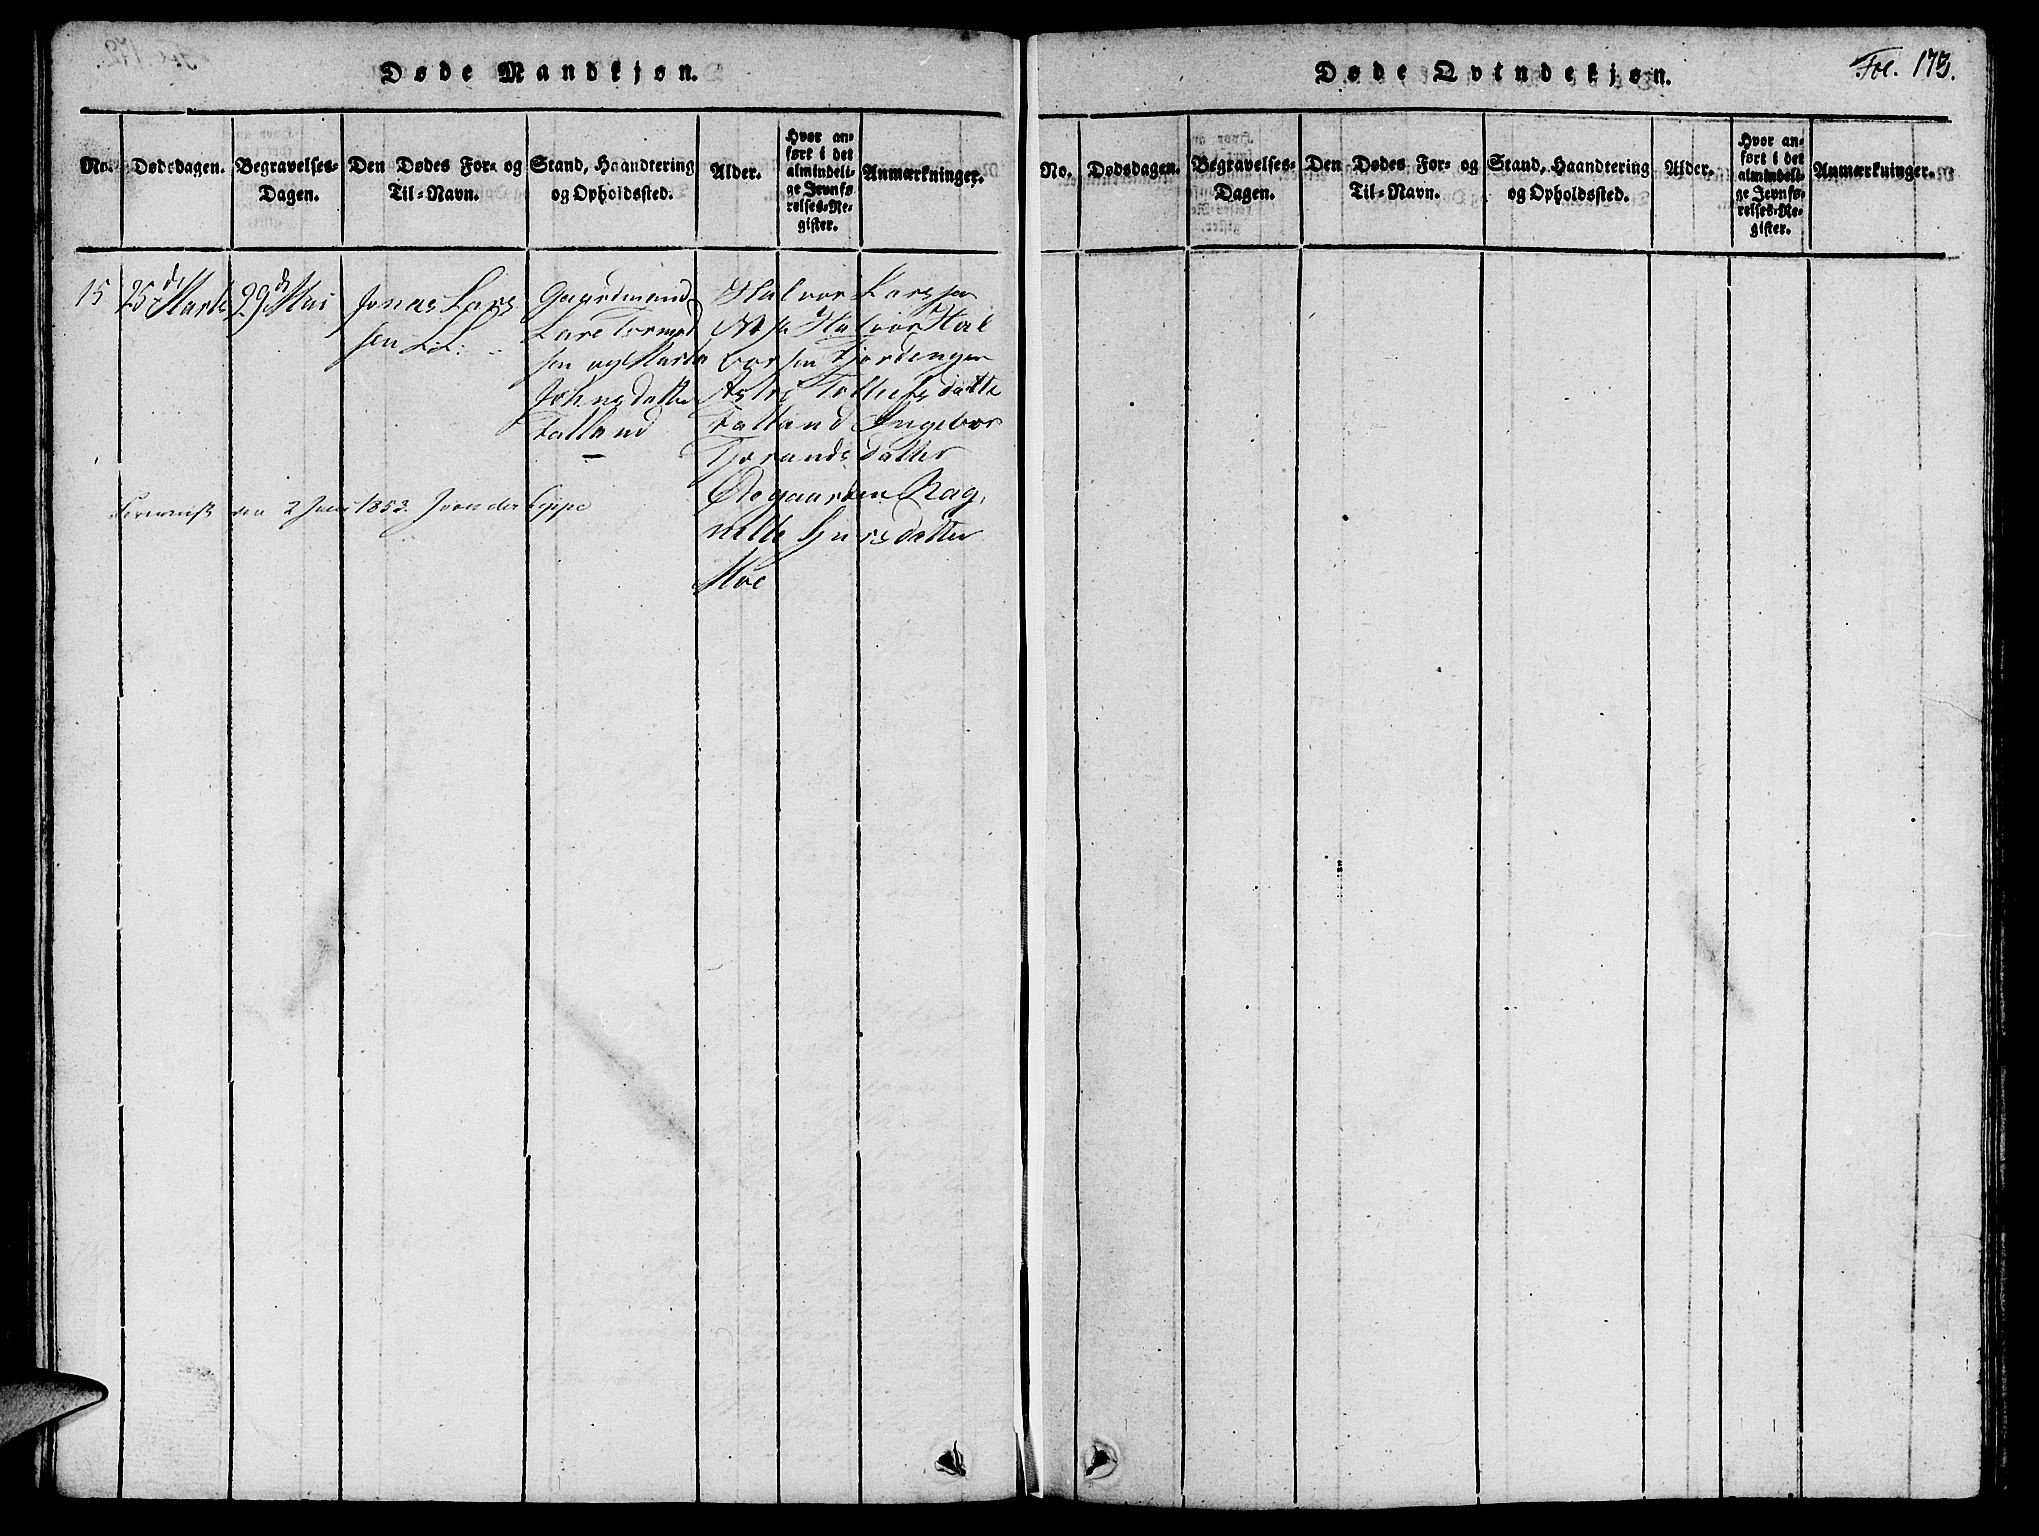 Døde Mandkjøn.
No.
Dødsdagen.
Begravelses-
Dagen.
Den Dødes For- og
Til-Navn.
Stand, Haandtering
og Opholdssted.
Alder.
Hvor an-
ført i det
almindeli-
ge Jevnfø-
relses-Re-
gister.
Anmærkninger.
15
25de Marts
29de Mai
Jonas Lars
sen
Gaardmand
Lars Tormod
sen og Marta
Johnsdatter
Falland
Halvor Larssen
Halvor Hal
vorssen Fjordengen
Tollefsdatte
Falland Ingebor
Tjerandsdatter
Øegaarden Rag,
nilde
datter
Moe
den 2 Juni 1853. J von der Lippe
Døde Qvindekjøn.
Fol. 173.
No.
Dødsdagen.
Begravelses-
Dagen.
Den Dødes For- og
Til-Navn.
Stand, Haandtering
og Opholdssted.
Alder.
Hvor an-
ført i det
almindeli-
ge Jevnfø-
relses-Re-
gister.
Anmærkninger.